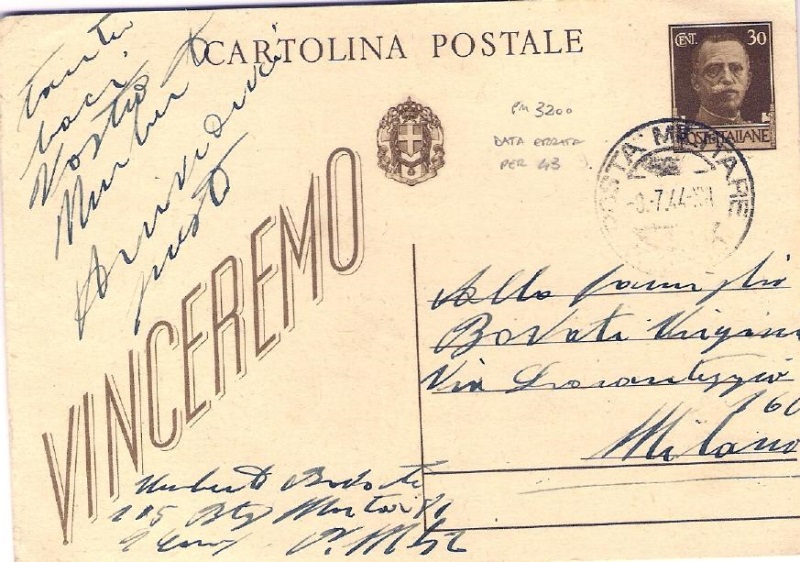 CARTOLINA POSTALE
CENT. 30
POSTE ITALIANE
PM 3200
DATA ERRATA
PER 43
POSTA MILITARE
7.44
Tanti
baci
Vostro
Arrivederci
presto
VINCEREMO
Alla famiglia
Bovati Virginio
Via
160
Milano
Umberto
115 Btg Mortai
P. M.